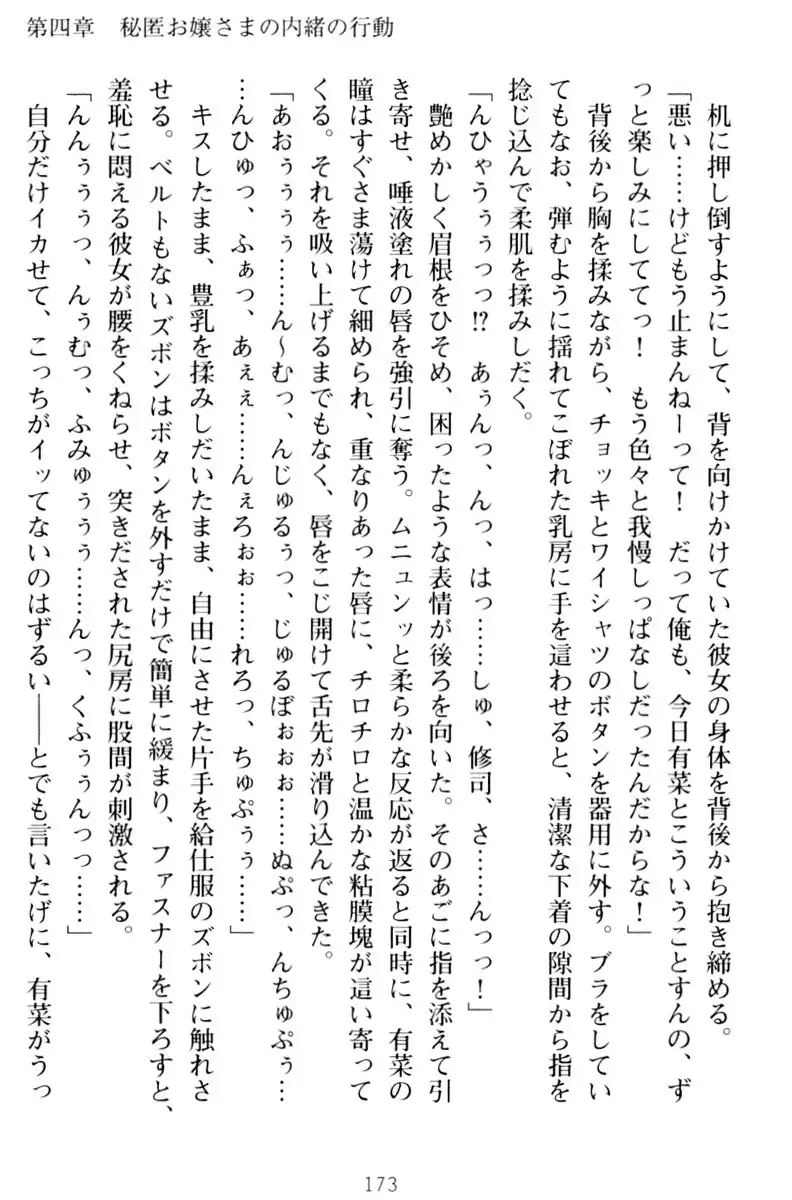 第四章　秘匿お嬢さまの内緒の行動
　机に押し倒すようにして、背を向けかけていた彼女の身体を背後から抱き締める。
「悪い……けどもう止まんねーって！　だって俺も、今日有菜とこういうことすんの、ず
っと楽しみにしててっ！　もう色々と我慢しっぱなしだったんだからな！」
　背後から胸を揉みながら、チョッキとワイシャツのボタンを器用に外す。ブラをしてい
てもなお、弾むように揺れてこぼれた乳房に手を這わせると、清潔な下着の隙間から指を
捻じ込んで柔肌を揉みしだく。
「んひゃうぅぅっっ!?　あぅんっ、んっ、はっ……しゅ、修司、さ……んっっ！」
　艶めかしく眉根をひそめ、困ったような表情が後ろを向いた。そのあごに指を添えて引
き寄せ、唾液塗れの唇を強引に奪う。ムニュンッと柔らかな反応が返ると同時に、有菜の
瞳はすぐさま蕩けて細められ、重なりあった唇に、チロチロと温かな粘膜塊が這い寄って
くる。それを吸い上げるまでもなく、唇をこじ開けて舌先が滑り込んできた。
「あおぅぅぅぅ……ん～むっ、んじゅるぅっ、じゅるぼぉぉぉ……ぬぷっ、んちゅぷぅ…
…んひゅっ、ふぁっ、あぇぇ……んぇろぉぉ……れろっ、ちゅぷぅぅ……」
　キスしたまま、豊乳を揉みしだいたまま、自由にさせた片手を給仕服のズボンに触れさ
せる。ベルトもないズボンはボタンを外すだけで簡単に緩まり、ファスナーを下ろすと、
羞恥に悶える彼女が腰をくねらせ、突きだされた尻房に股間が刺激される。
「んんぅぅぅっ、んぅむっ、ふみゅぅぅぅ……んっ、くふぅぅんっっ……」
　自分だけイカせて、こっちがイッてないのはずるい――とでも言いたげに、有菜がうっ
173